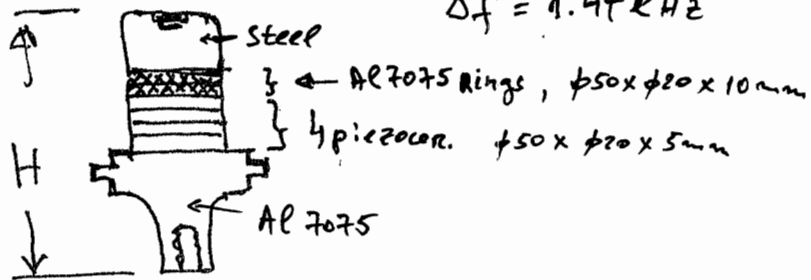 Δf = 1.47 kHz
Steel
Al 7075 Rings, ϕ50 x ϕ20 x 10mm
4 piezocer. ϕ50 x ϕ20 x 5mm
H
Al 7075